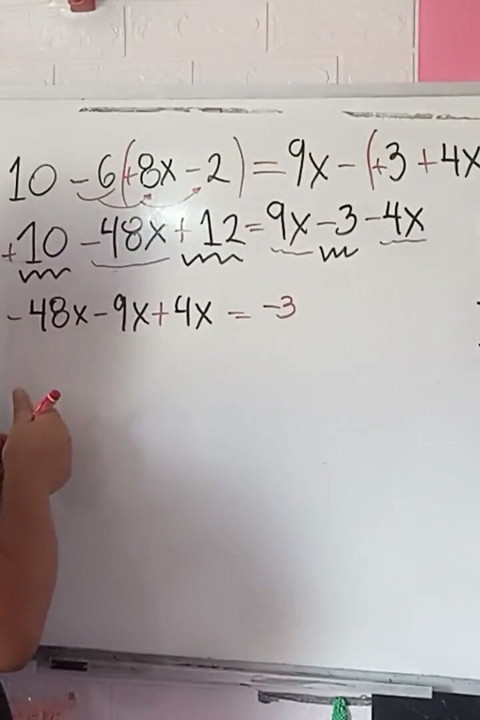 10 - 6(+8x - 2) = 9x - (+3 + 4x
+10 - 48x + 12 = 9x - 3 - 4x
- 48x - 9x + 4x = -3